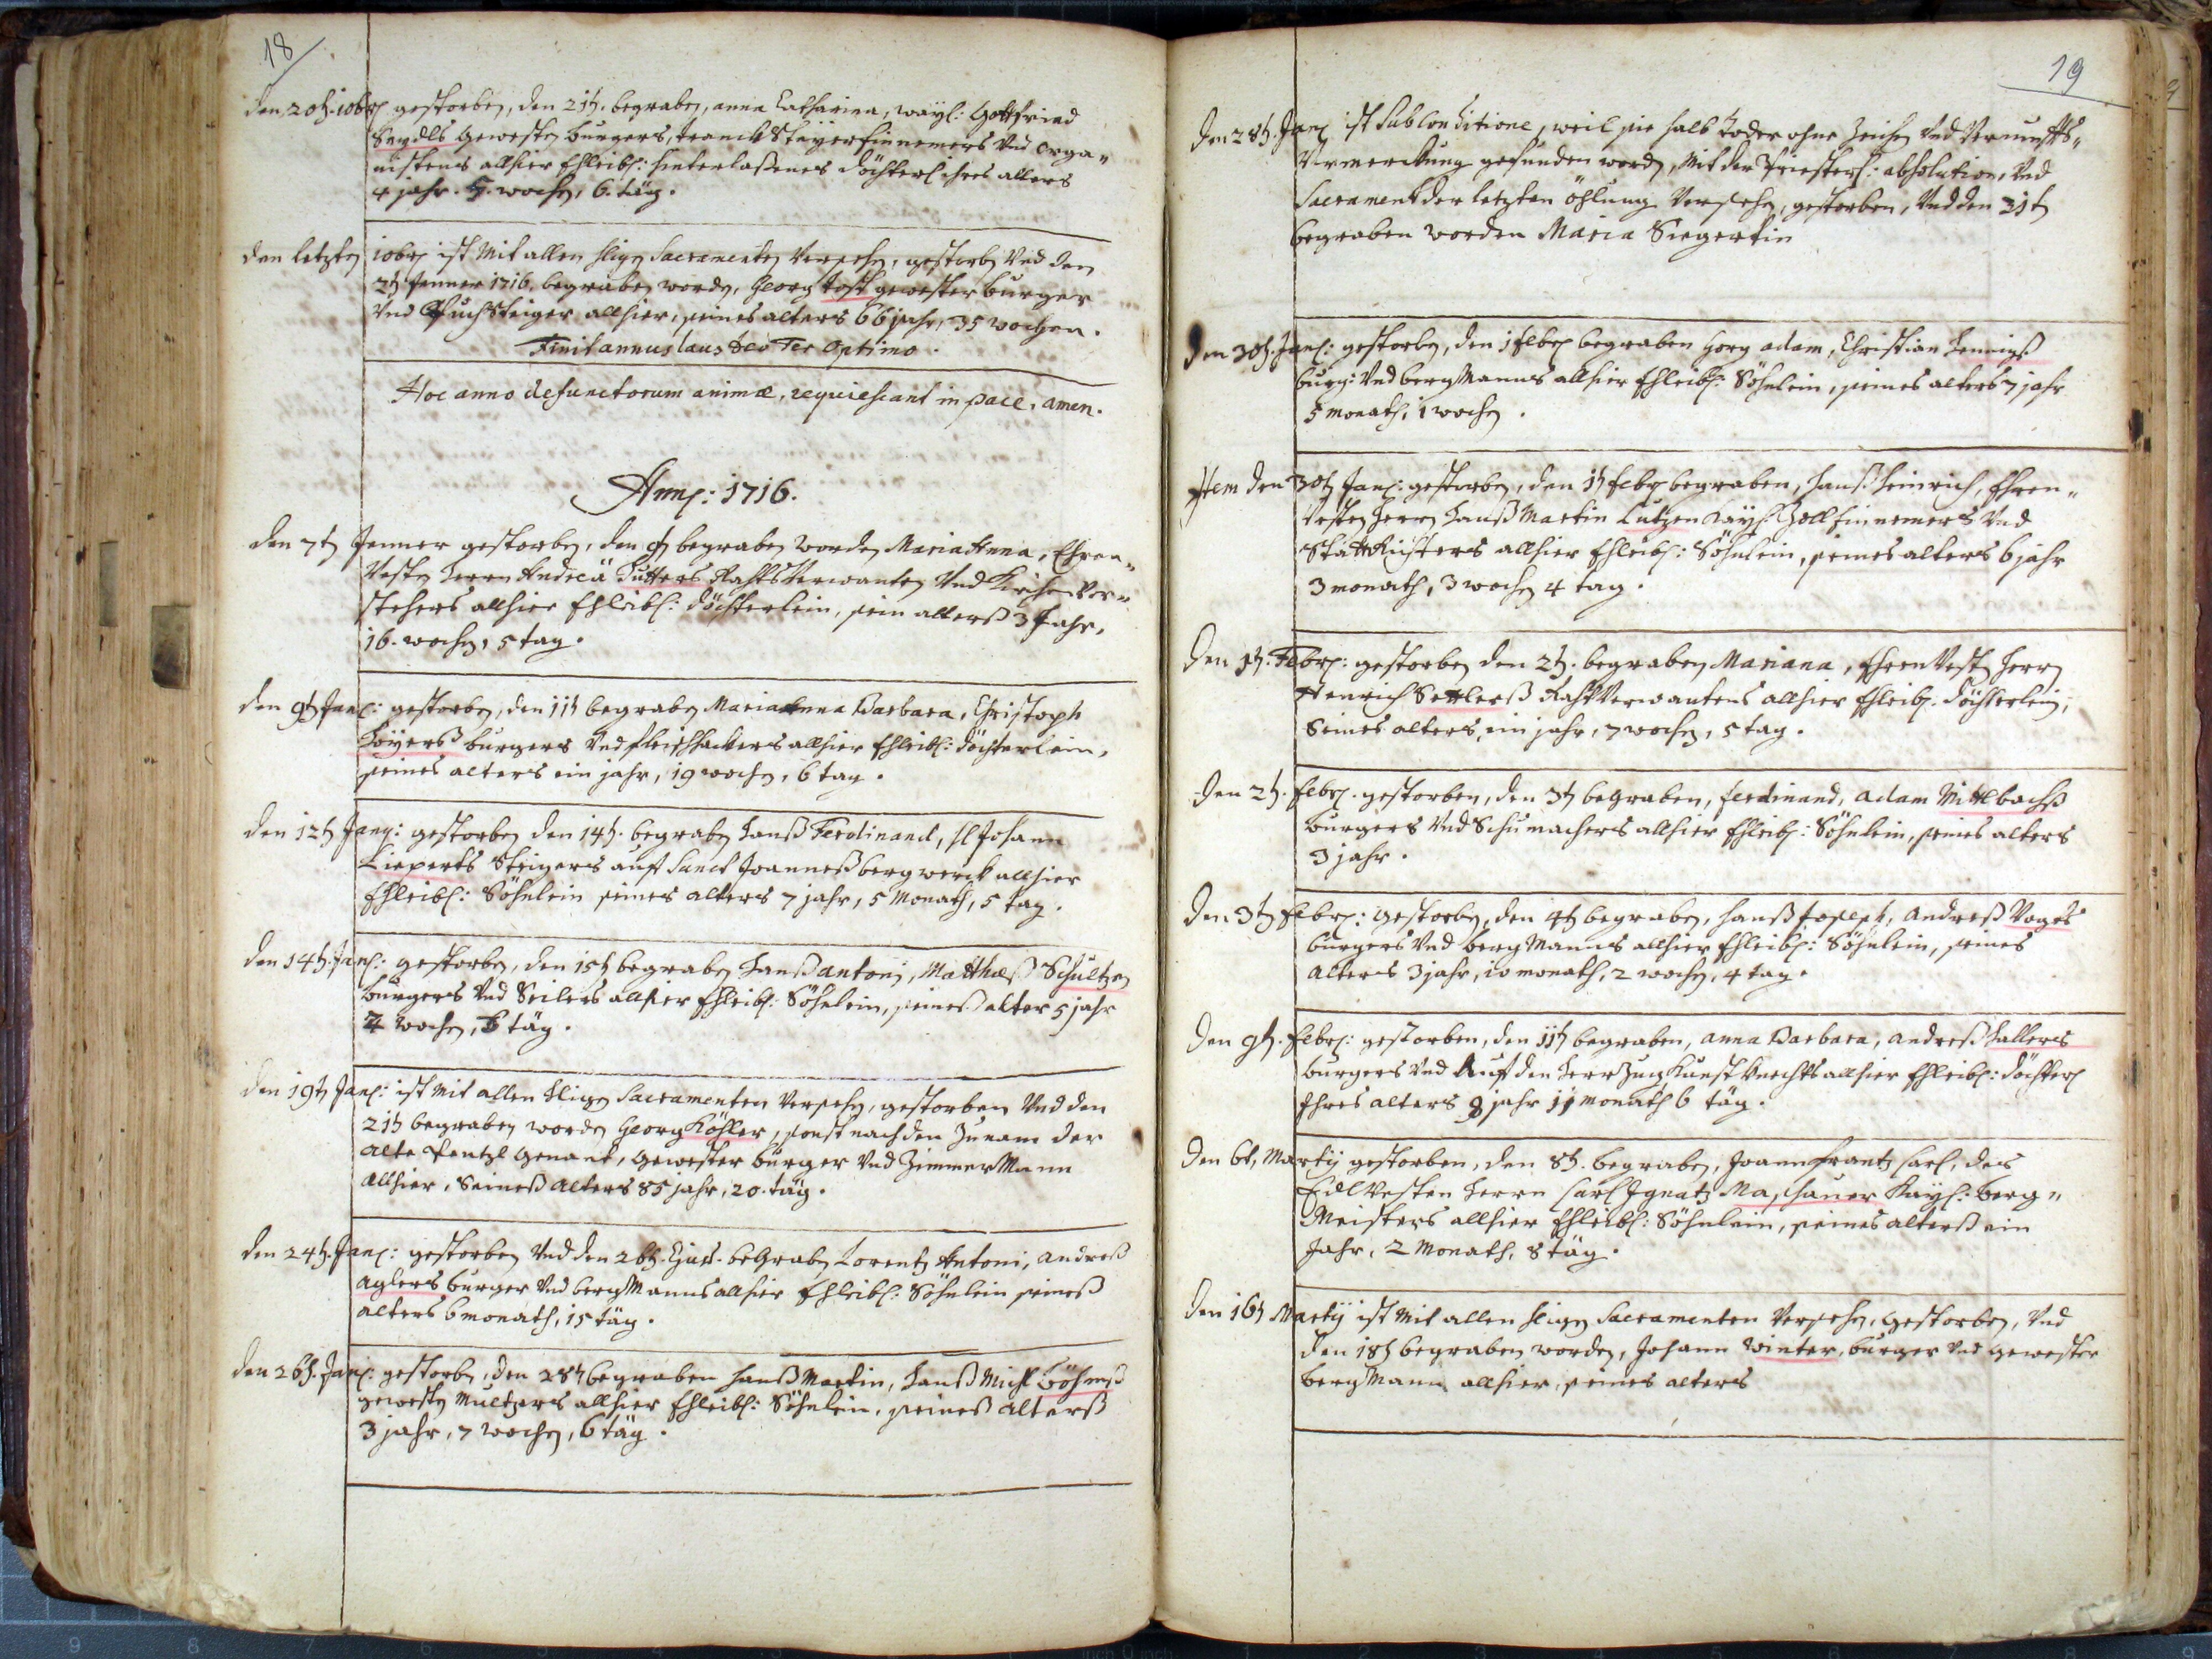 18
den 20t. 10br gestorben, den 21t. begraben, anna Catharina, wayl: Gottfried
Seydls Gewesten burgers, tranck Steyer Einnemers Vnd orga„
nistens allhier Ehleibl: hinterlaßenes Döchterl ihres alters
4 jahr. 5. wochen, 6. täg.
den letzten 10br ist Mit allen hligen Sacramenten Versehen, gestorben Vnd den
2t Jenner 1716. begraben worden, Georg Jost gewester burger
Vnd Steiger allhier, seines alters 66 jahr, 35 wochen.
Finit annus laus Deo Ter Optimo.
Hoc anno defunctorum animæ, requiescant in pace, amen.
Anno: 1716.
den 7t Jenner gestorben, den 9t begraben worden Maria Anna, Ehren„
Vesten Herrn Andreä Kutters Rahtsverwanten Vnd Kirchen Vor„
stehers allhier Ehleibl: döchterlein, sein alterß 3 Jahr,
16. wochen, 5 tag.
den 9t Janr: gestorben, den 11t begraben Maria Anna Barbara, Christoph
burgers Vnd fleischhackers allhier Ehleibl: döchterlein,
seines alters ein jahr, 19 wochen, 6 tag.
den 12t Janr: gestorben den 14t. begraben Hanß Ferdinand, H Johann
Lieperts Steigers auf Sanct Joanneß bergwerck allhier
Ehleibl: Söhnlein seines alters 7 jahr, 5 Monath, 5 tag.
den 14t. Janr: gestorben, den 15t begraben Hanß antoni, Matthæß Schultzen
burgers Vnd Seilers allhier Ehleibl: Söhnlein, seineß alter 5 jahr
4 wochen, 6 täg.
den 19t Janr: ist Mit allen hligen Sacramenten Versehen, gestorben Vnd den
21t begraben worden Georg Köhler, sonst nach den Zunam der
alte genant, gewester burger Vnd Zimmer Mann
allhier, Seineß alters 85 jahr, 20. täg.
den 24t. Janr: gestorben Vnd den 26t. Ejusd. begraben Lorentz Antoni, andreß
aglers burger Vnd bergManns allhier Ehleibl: Söhnlein seineß
alters 6 monath, 15 täg.
den 26t. Janr: gestorben, den 28t begraben Hanß Martin, Hanß Michl Böhmß
gewesten Multzers allhier Ehleibl: Söhnlein, seineß alterß
3 jahr, 7 wochen, 6 täg.
19
den 28t. Janr ist Sub Conditione, weil sie halb Toder ohne Zeichen Vnd Vernunffts„
Vermerckung gefunden worden, Mit der Priesterl: absolution, Vnd
Sacrament der letzten öhlung Versehen, gestorben, Vnd den 31t
begraben worden Maria Siegertin
den 30t. Janr: gestorben, den 1 febr begraben Georg adam, Christian Hennigß
burg: Vnd bergManns allhier Ehleibl: Söhnlein, seines alters 7 jahr
5 monath, 1 wochen.
Item den 30t Janr: gestorben, den 1t febr begraben, Hanß Heinrich, Ehren„
Vesten Herrn Hanß Martin Lutzen Kayl: Zoll Einnemers Vnd
Stattrichters allhier Ehleibl: Söhnlein, seines alters 6 jahr
3 monath, 3 wochen 4 tag.
den 1t. Febr: gestorben den 2t. begraben Mariana, EhrenVesten Herrn
Henrich Settlerß Raht Verwantens allhier Ehleibl. döchterlein,
Seines alters, ein jahr, 7 wochen, 5 tag.
den 2t. febr. gestorben, den 3t begraben, ferdinand, adam Mittlbachß
burgers Vnd Schumachers allhier Ehleibl: Söhnlein, seines alters
3 jahr.
den 3t febr: gestorben, den 4t begraben, Hanß Joseph, andreß Voges
burgers Vnd bergManns allhier Ehleibl: Söhnlein, seines
alters 3 jahr, 10 monath, 2 wochen, 4 tag.
den 9t. febr: gestorben, den 11t begraben, anna Barbara, andreß Hallers
burgers Vnd Auf den Kunst knechts allhier Ehleibl: döchterl
Ihres alters 8 jahr 11 Monath 6 täg.
den 6t, Martij gestorben, den 8t. begraben, Joann Frantz Carl, des
EdlVesten Herrn Carl Ignatz Maschauer Kayl: berg„
Meisters allhier Ehleibl: Söhnlein, seines alterß ein
Jahr, 2 Monath, 8 täg.
den 16t Martij ist Mit allen hligen Sacramenten Versehen, gestorben, Vnd
den 18t begraben worden, Johann Winter, burger Vnd gewester
bergMann allhier, seines alters